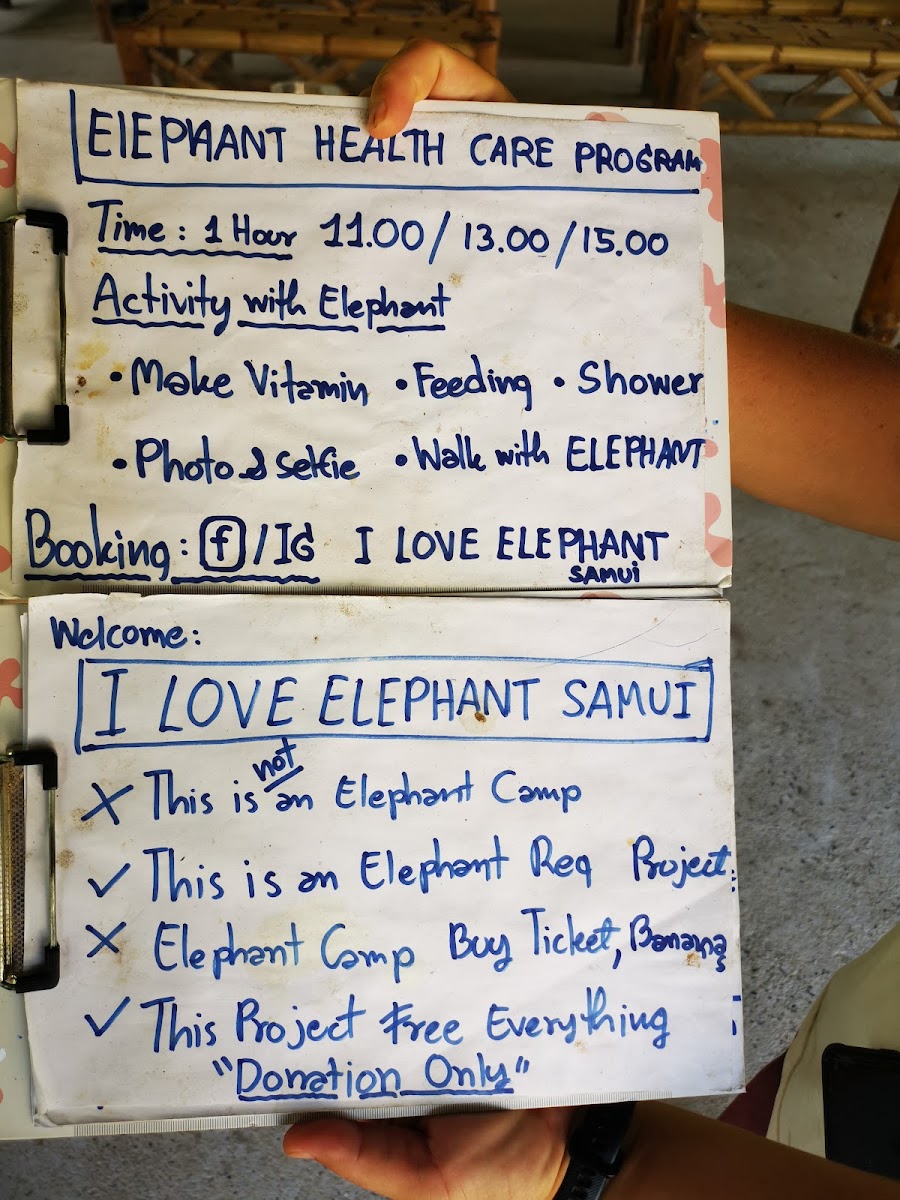 ElEPHANT HEALTH CARE PROGRAM
Time : 1 Hour 11.00 / 13.00 / 15.00
Activity with Elephant
• Make Vitamin • Feeding • Shower
• Photo & Selfie • Walk with ELEPHANT
Booking : f / IG I LOVE ELEPHANT
SAMUi
Welcome:
I LOVE ELEPHANT SAMUI
not
X This is an Elephant Camp
✓ This is an Elephant Req Project
X Elephant Camp Buy Ticket, Banana
✓ This Project Free Everything
"Donation Only"